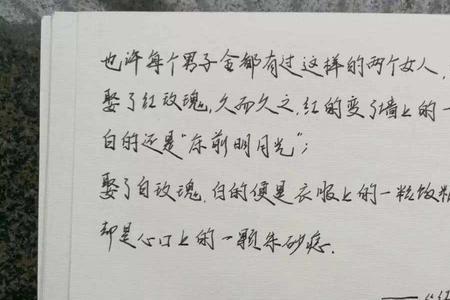 也许每个男子全都有过这样的两个女人,
娶了红玫瑰,久而久之,红的变了墙上的一
白的还是"床前明月光";
娶了白玫瑰,白的便是衣服上的一粒饭粘
却是心口上的一颗朱砂痣.
——《红